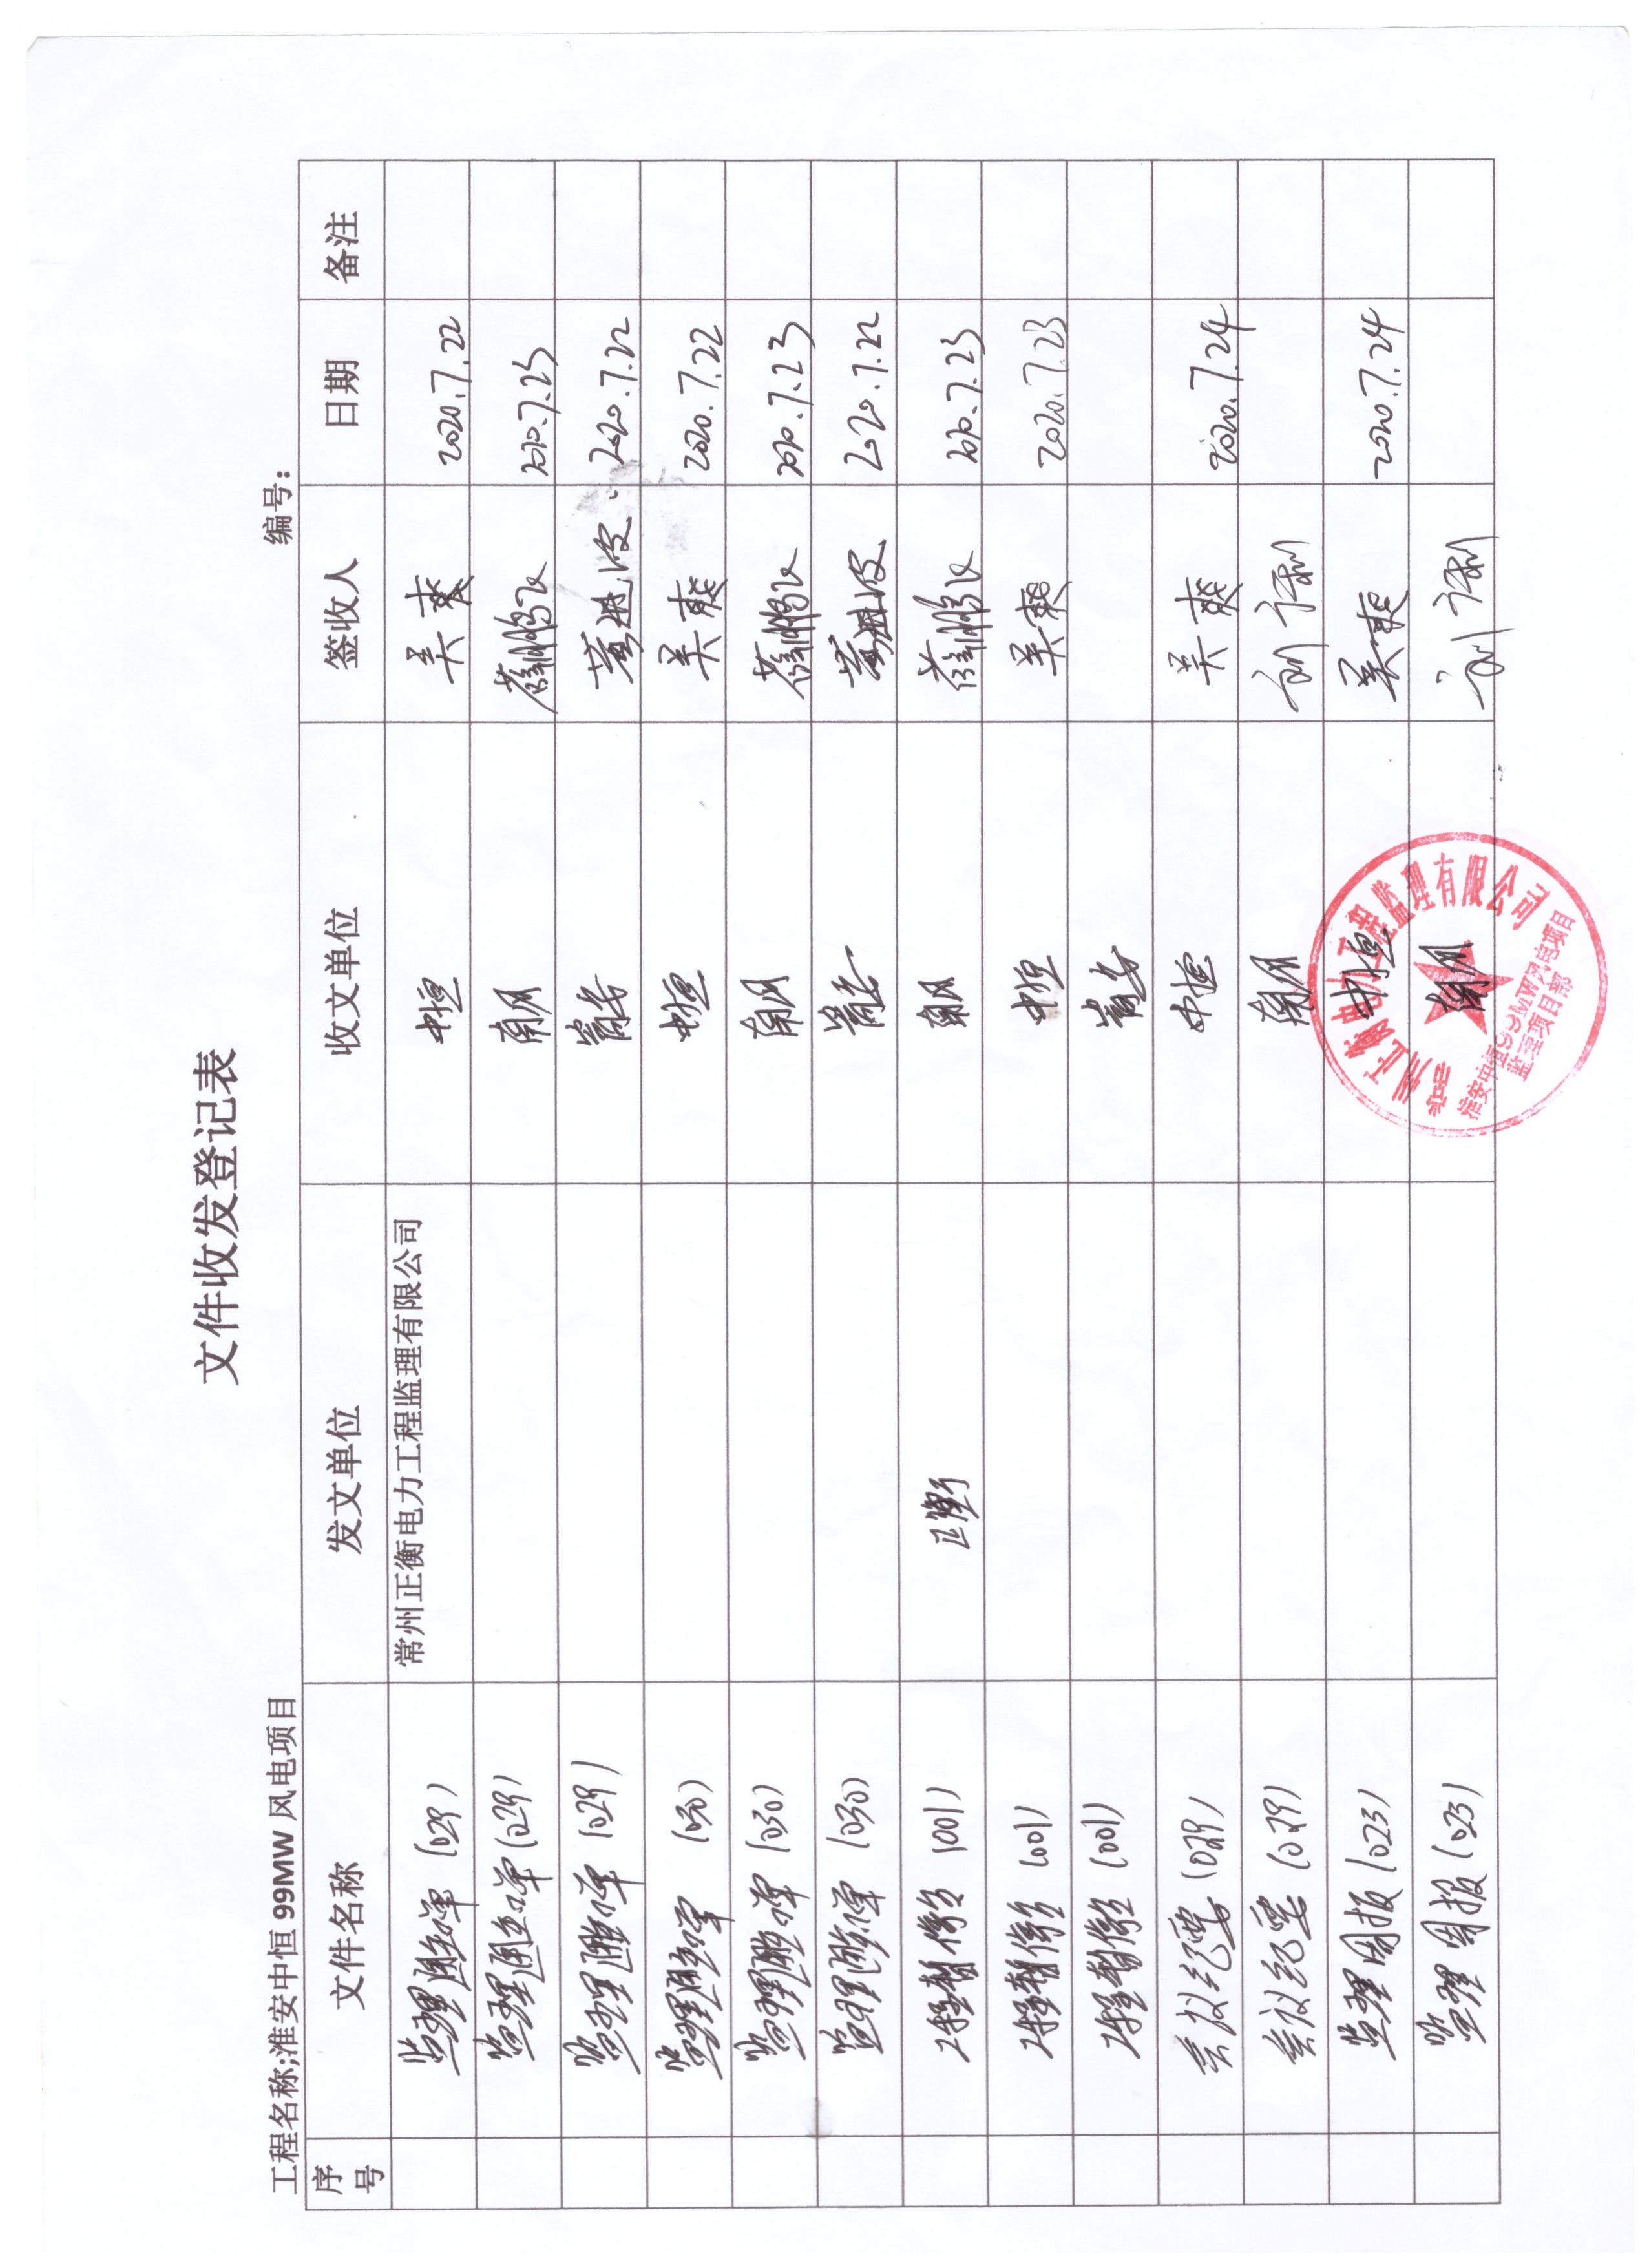 文件收发登记表
工程名称;淮安中恒99MW风电项目 编号：
序号 文件名称 发文单位 收文单位 签收人 日期 备注
监理通知单(029) 常州正衡电力工程监理有限公司 中恒 吴爽 2020.7.22
监理通知单(029) 南风 2020.7.23
监理通知单(029) 2020.7.22
监理通知单(030) 中恒 吴爽 2020.7.22
监理通知单(030) 南风 2020.7.23
监理通知单(030) 2020.7.22
工程暂停令(001) 正衡 南风 2020.7.23
工程暂停令(001) 中恒 吴爽 2020.7.23
工程暂停令(001)
会议纪要(029) 中恒 吴爽 2020.7.24
会议纪要(029) 南风
监理周报(023) 中恒 吴爽 2020.7.24
监理周报(023) 南风
常州正衡电力工程监理有限公司
淮安中恒99MW风电项目
监理项目部